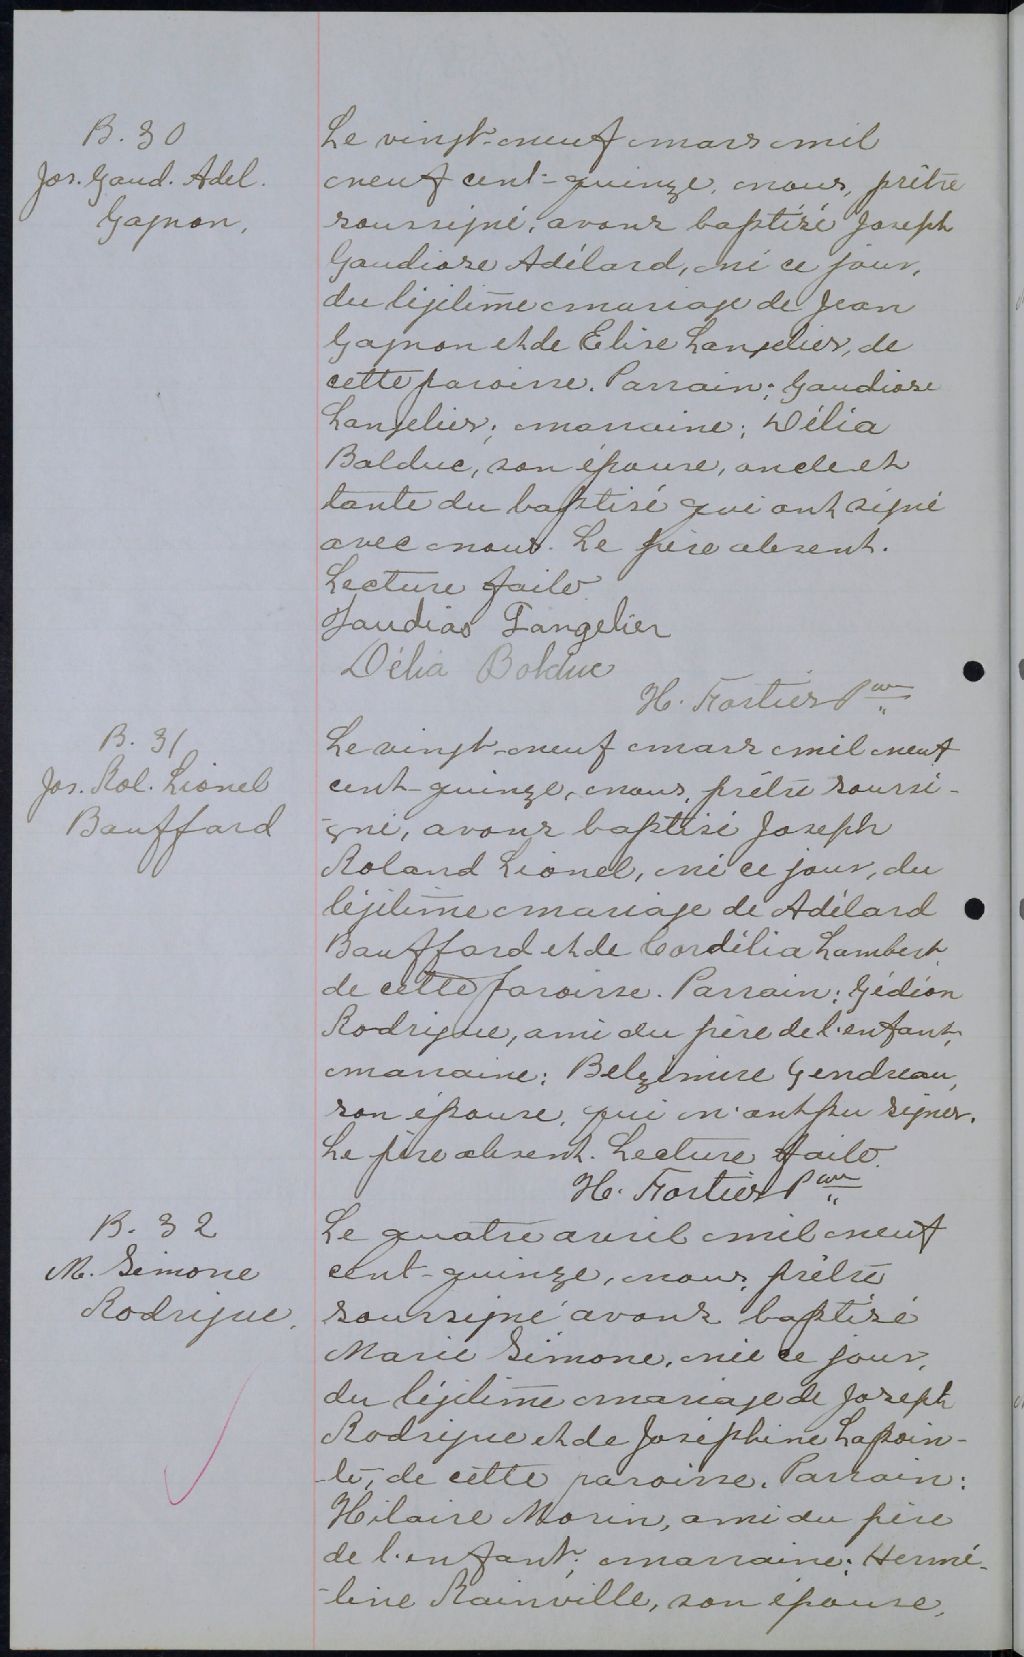 B. 30
Jos. Gaud. Adel.
Gagnon,
Le vingt-neuf mars mil
neuf cent-quinze, nous, prêtre
soussigné, avons baptisé Joseph
Gaudiose Adélard, né ce jour,
du légitime mariage de Jean
Gagnon et de Elise Langelier, de
cette paroisse. Parrain: Gaudiose
Langelier; marraine: Délia
Balduc, son épouse, oncle et
tante du baptisé qui ont signé
avec nous. Le père absent.
Lecture faite
Gaudias Langelier
Délia Bolduc
H. Fortier Ptre
B. 31
Jos. Rol. Lionel
Bauffard
Le vingt-neuf mars mil neuf
cent-quinze, nous, prêtre soussi-
-gné, avons baptisé Joseph
Roland Lionel, né ce jour, du
légitime mariage de Adélard
Bauffard et de Cordélia Lambert
de cette paroisse. Parrain: Gédéon
Rodrigue, ami du père de l'enfant,
marraine: Belzémire Gendreau,
son épouse, qui n'ont pu signer.
Le père absent. Lecture faite.
H. Fortier Ptre
B. 32
M. Simone
Rodrigue,
Le quatre avril mil neuf
cent-quinze, nous, prêtre
soussigné avons baptisé
Marie Simone, née ce jour,
du légitime mariage de Joseph
Rodrigue et de Joséphine Lapoin-
-te, de cette paroisse. Parrain:
Hilaire Morin, ami du père
de l'enfant; marraine: Hermé-
-line Rainville, son épouse,